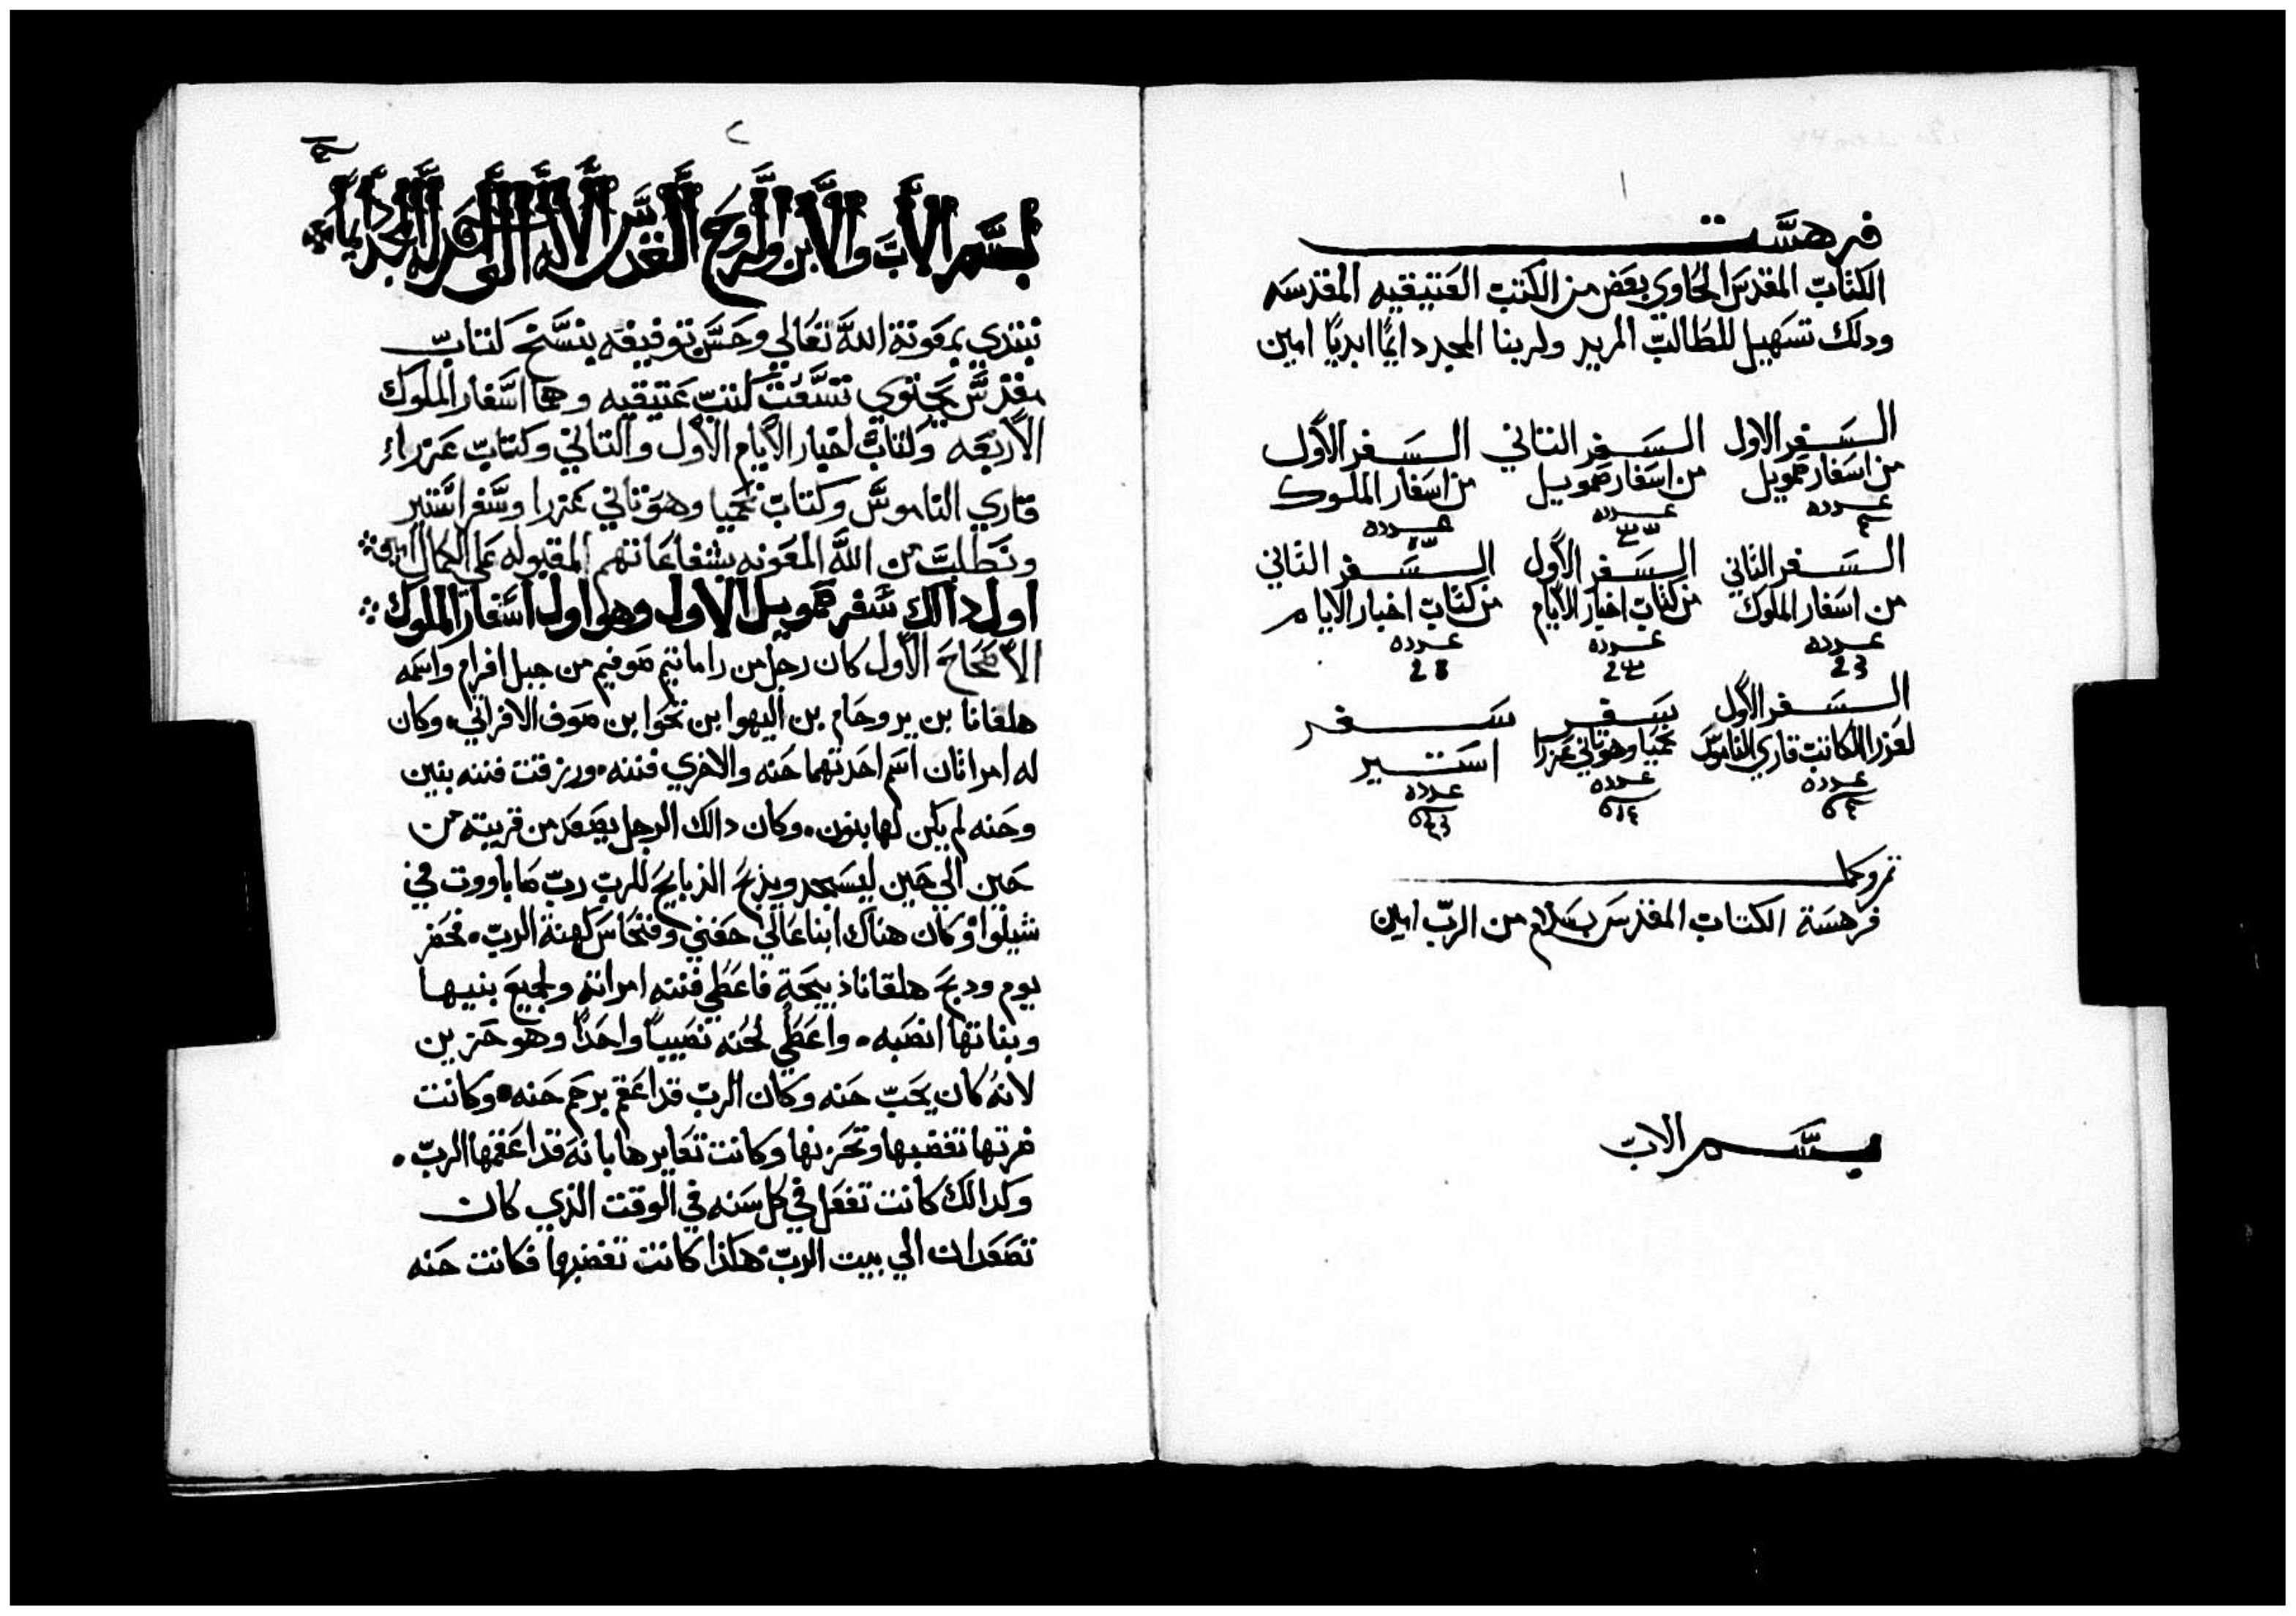 فرهست
الكتاب المقدس الحاوي بعض من الكتب العتيقيه المقدسه
ودلك تسهيل للطالب المريد ولربنا المجد دايمًا ابديًا امين
السفر الاول
من اسفار صمويل
عدده
السفر التاني
من اسفار صمويل
عدده
السفر الأول
من اسفار الملوك
عدده
السفر التاني
من اسفار الملوك
عدده
السفر الأول
من كتاب اخبار الايام
عدده
السفر التاني
من كتاب اخبار الايام
عدده
السفر الأول
لعزرا الكاتب قاري الناموس
عدده
سفر
نحميا وهو تاني عزرا
عدده
سفر
استير
عدده
فرهسة الكتاب المقدس بسلام من الرب امين
بسم الاب
٢
بسم الأب والأبن والروح القدس الأله الواحد له المجد دايمًا
نبتدي بمعونة الله تعالي وحسن توفيقه بنسخ كتاب
مقدس يحتوي تسعت كتب عتيقيه وهما اسفار الملوك
الأربعه وكتاب اخبار الأيام الأول والتاني وكتاب عزراء
قاري الناموس وكتاب نحميا وهو تاني عزرا وسفر استير
ونطلب من الله المعونه بشفاعاتهم المقبوله علي الكمال امين
اول دالك سفر صمويل الاول وهو اول اسفار الملوك
الأصحاح الأول كان رجل من راماتيم صوفيم من جبل افرام واسمه
هلقانا بن يروحام بن اليهوا بن نحوا بن صوف الافراني وكان
له امراتان اسم احدتهما حنه والاخري فننه ورزقت فننه بنين
وحنه لم يكن لها بنون وكان دالك الرجل يصعد من قريته من
حين الي حين ليسجد ويذبح الذبايح للرب رب صاباووت في
شيلوا وكان هناك ابنا عالي حفني وفنحاس كهنة الرب فحضر
يوم ودبح هلقانا ذبيحة فاعطي فننه امراته ولجميع بنيها
وبناتها انصبه واعطي لحنه نصيبًا واحدًا وهو حزين
لانهُ كان يحب حنه وكان الرب قد اعقم برحم حنه وكانت
ضرتها تغضبها وتحزنها وكانت تعايرها بانه قد اعقمها الرب
وكدالك كانت تفعل في كل سنه في الوقت الذي كان
تصعدان الي بيت الرب هكذا كانت تغضبها فكانت حنه